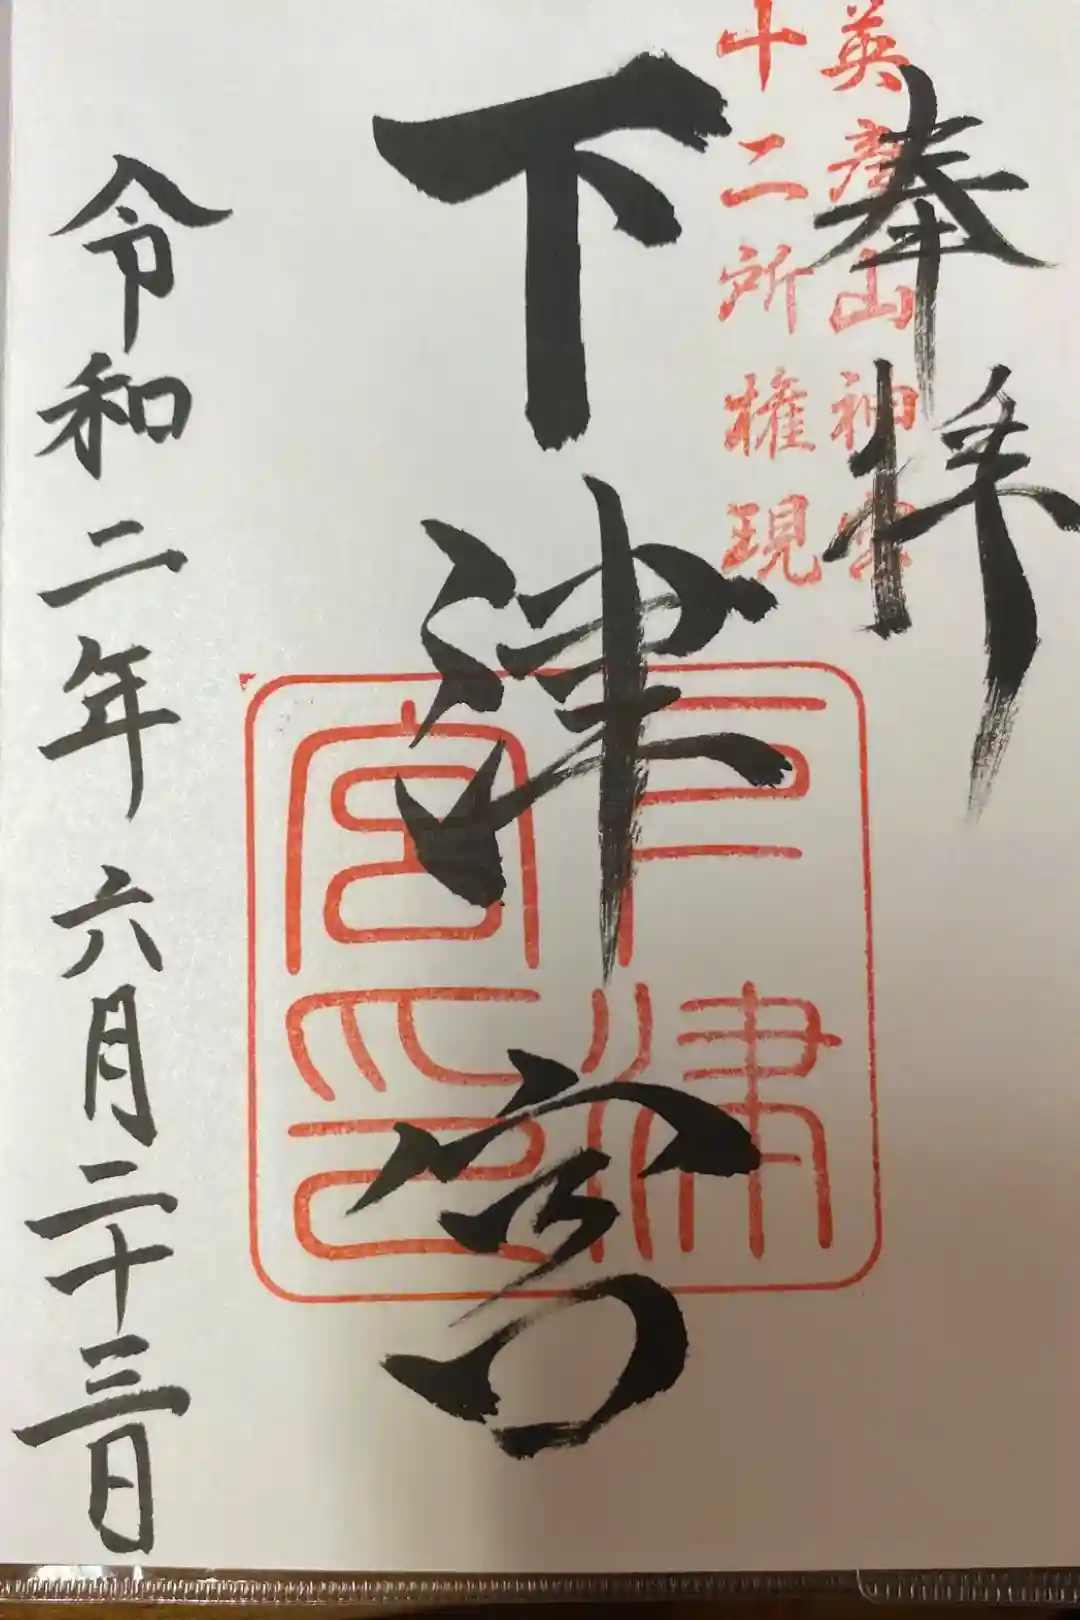 奉拝
英彦山神宮
十二所権現
下津宮
下津宮印
令和二年六月二十三日